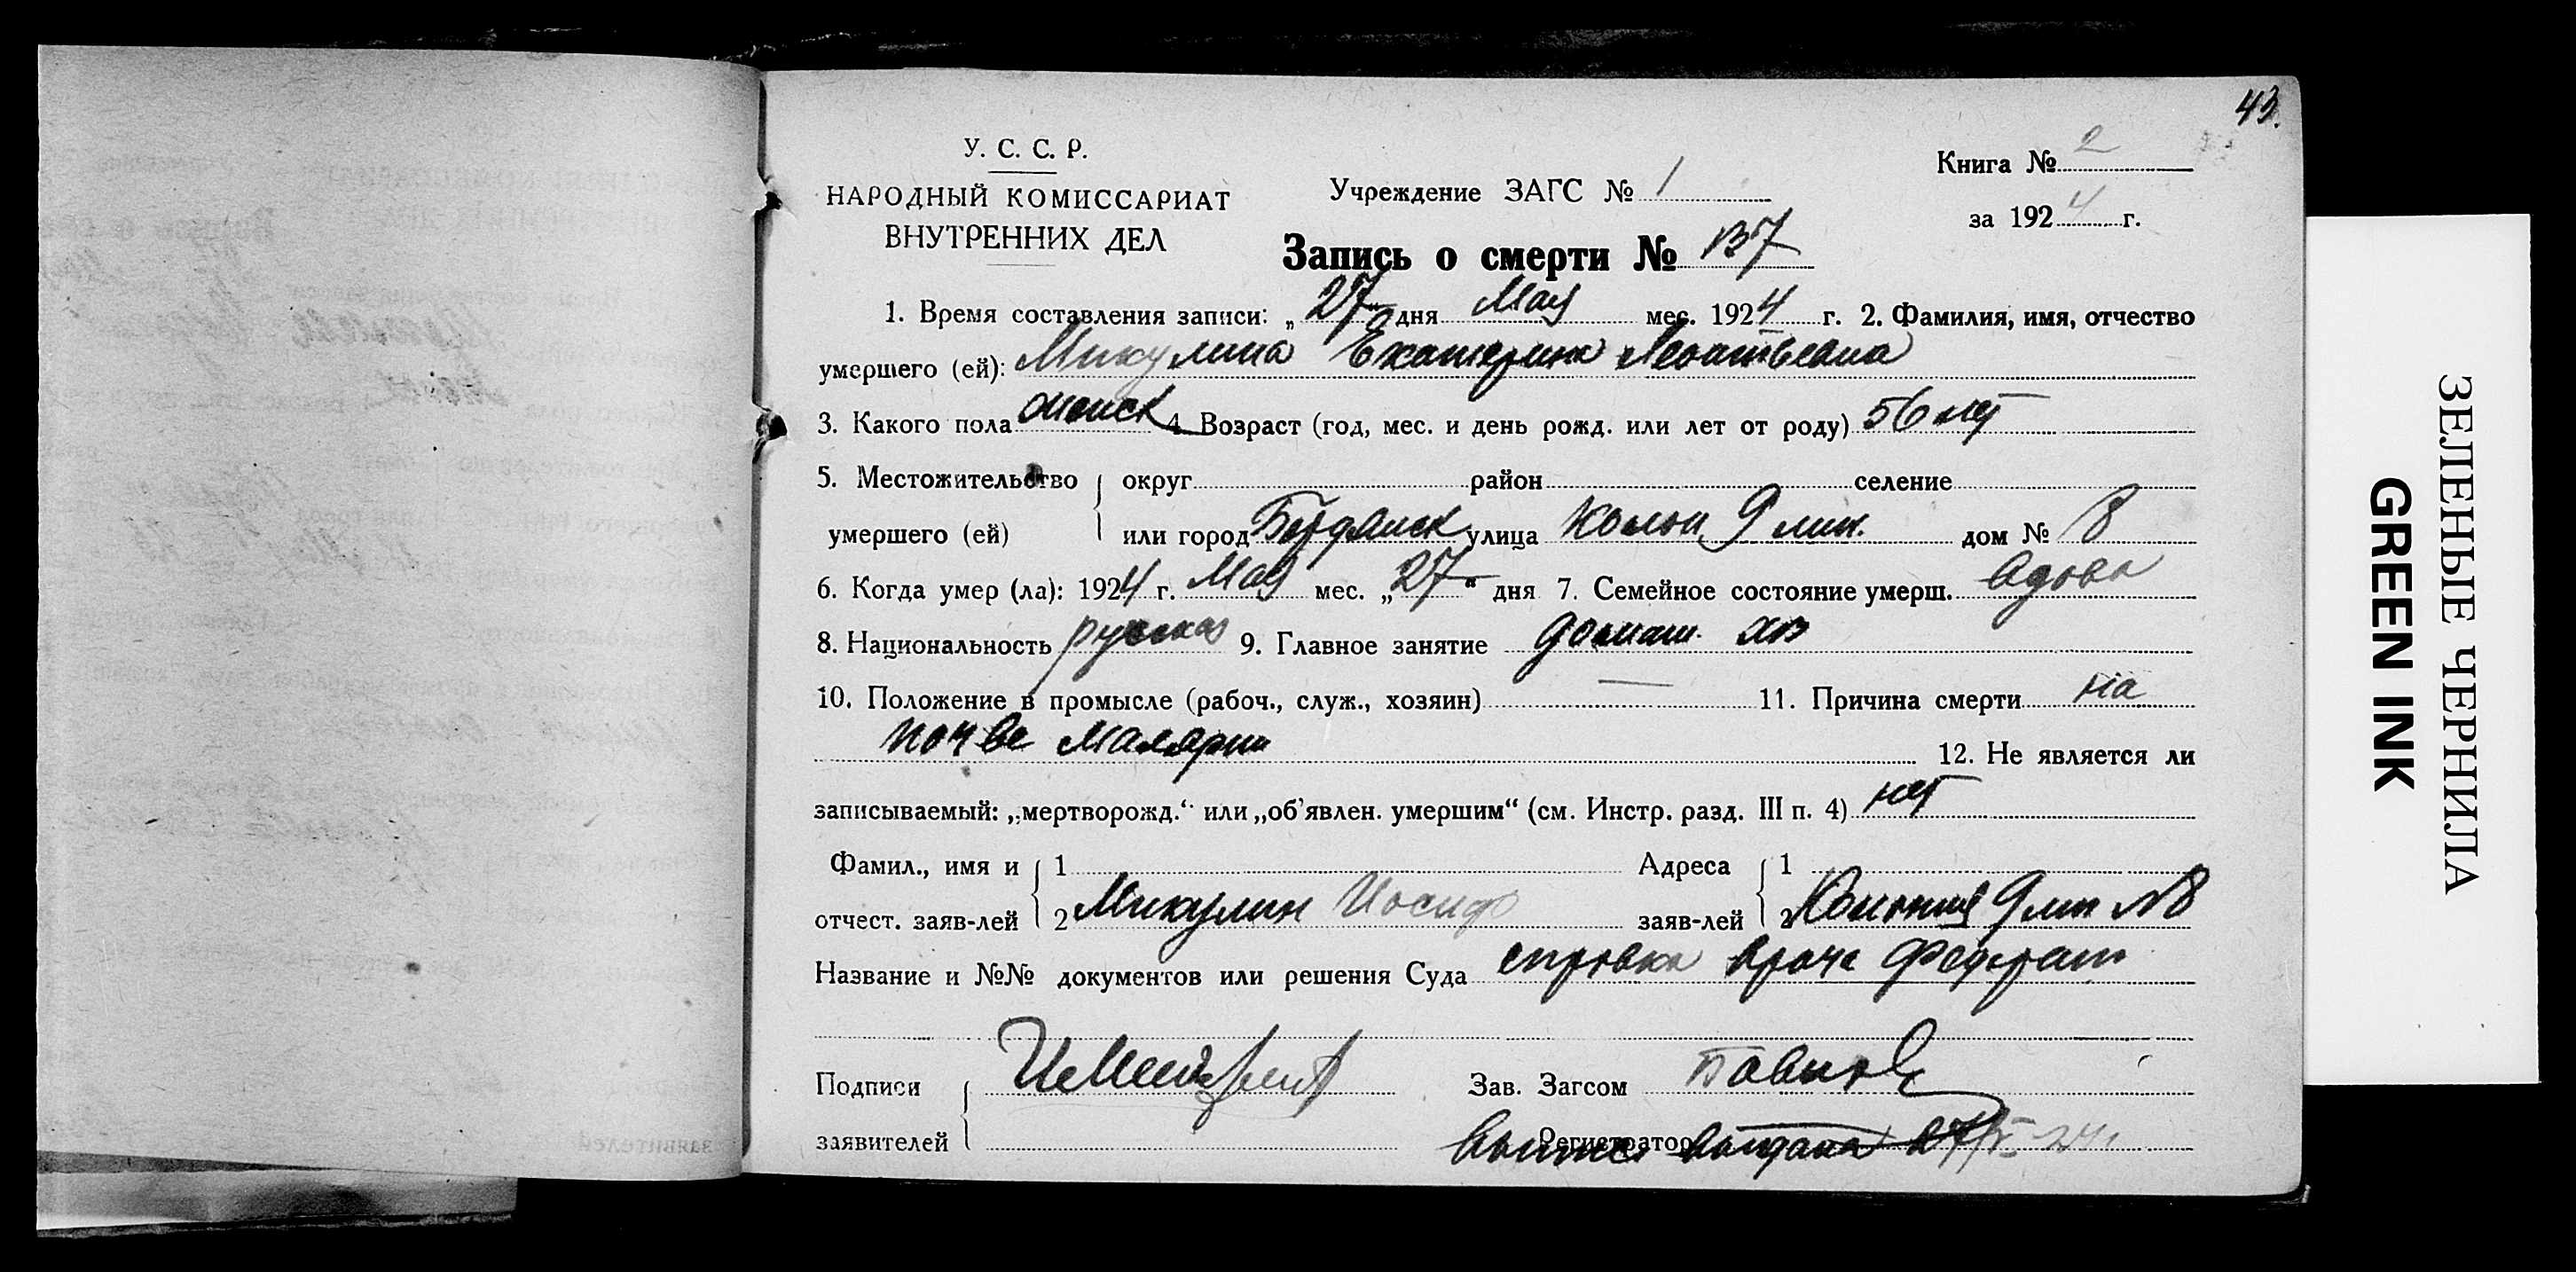 43.
У. С. С. Р.
НАРОДНЫЙ КОМИССАРИАТ
ВНУТРЕННИХ ДЕЛ
Учреждение ЗАГС № 1
Книга № 2
за 1924 г.
Запись о смерти № 137
1. Время составления записи: „27 дня Мая мес. 1924 г. 2. Фамилия, имя, отчество
умершего (ей): Микулина Екатерина
3. Какого пола женск 4. Возраст (год, мес. и день рожд. или лет от роду) 56 лет
5. Местожительство округ район селение
умершего (ей) или город Бердянск улица Колон. 9 лин. дом № 8
6. Когда умер (ла): 1924 г. Мая мес. „27“ дня 7. Семейное состояние умерш. вдова
8. Национальность русская 9. Главное занятие домаш. хоз
10. Положение в промысле (рабоч., служ., хозяин) — 11. Причина смерти на
почве малярии
12. Не является ли
записываемый: „мертворожд.“ или „об'явлен. умершим“ (см. Инстр. разд. III п. 4) нет
Фамил., имя и 1 Адреса 1
отчест. заяв-лей 2 Микулин Иосиф заяв-лей 2 Колония 9 лин №8
Название и №№ документов или решения Суда справка врача
Подписи Зав. Загсом
заявителей Регистратор
выпись выдана 27/V-24г
ЗЕЛЕНЫЕ ЧЕРНИЛА
GREEN INK